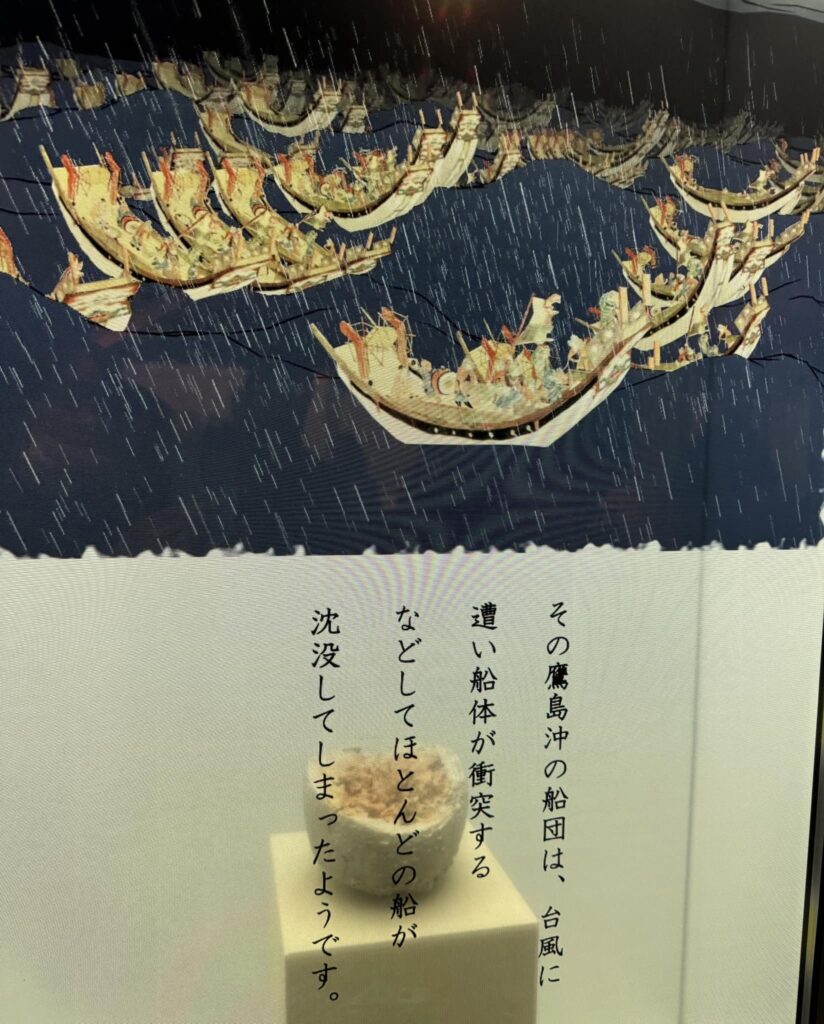 その鷹島沖の船団は、台風に
遭い船体が衝突する
などしてほとんどの船が
沈没してしまったようです。